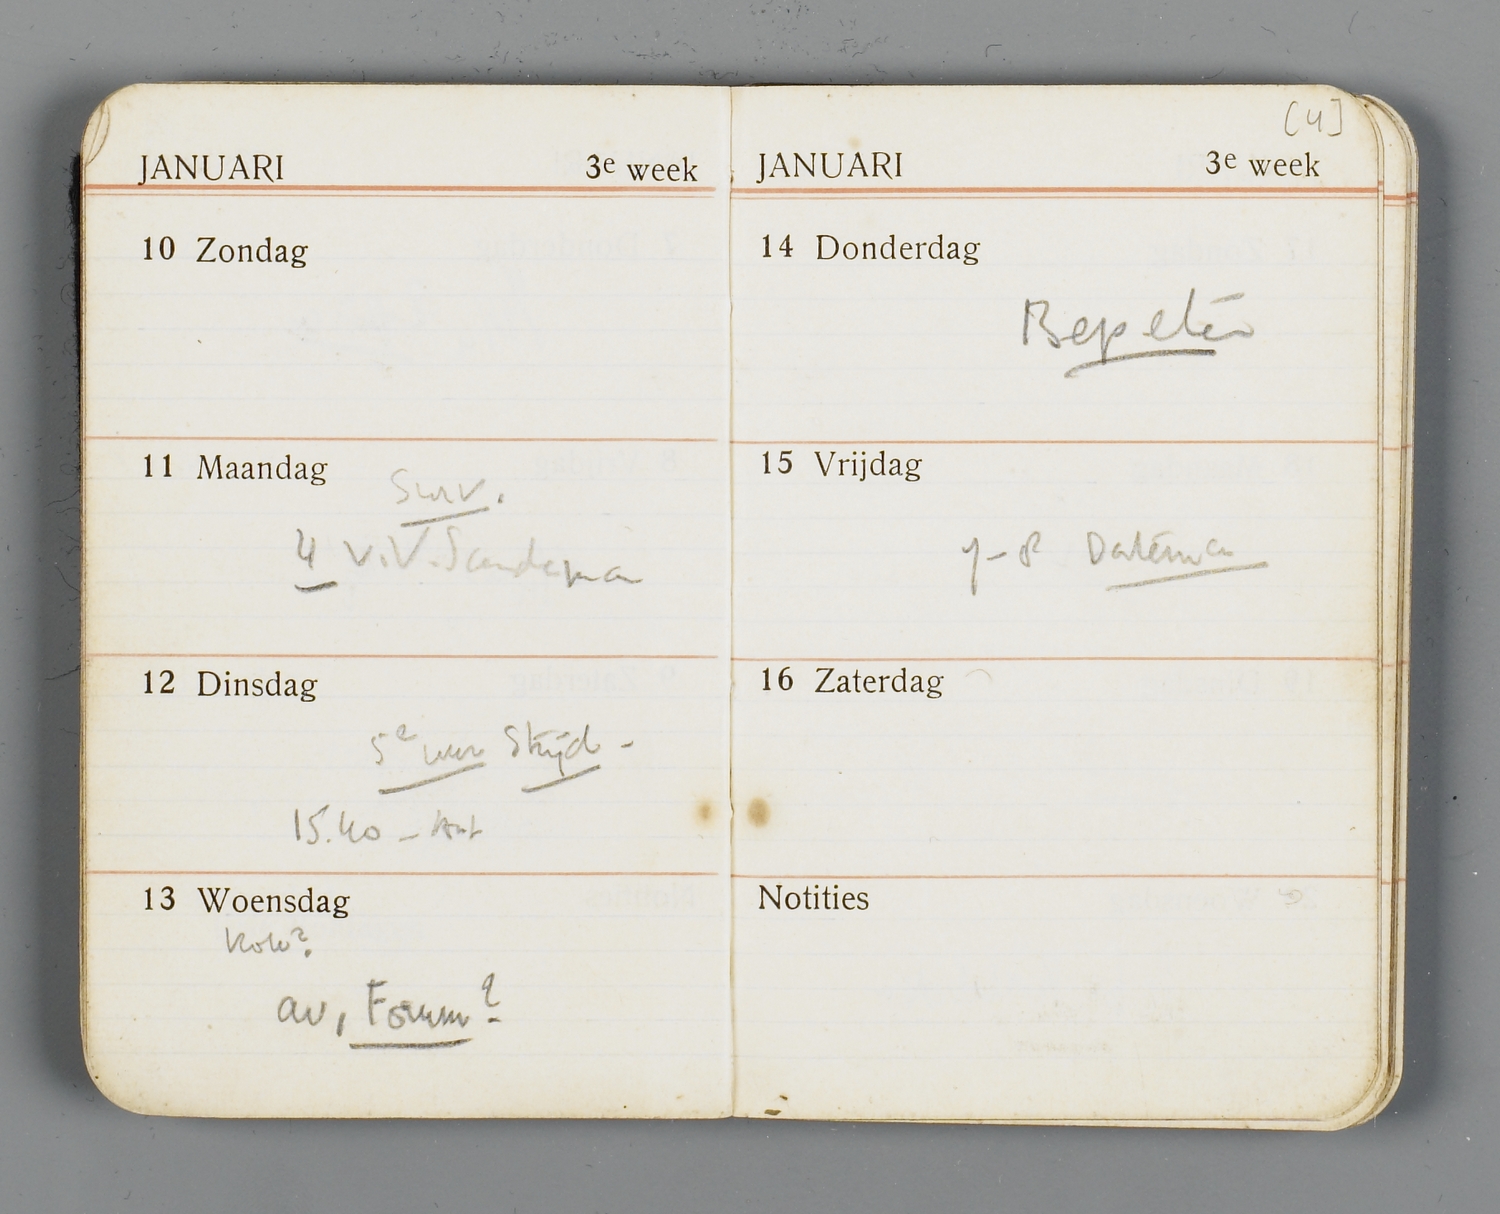 JANUARI 3e week
10 Zondag
11 Maandag
Surv.
4 v.V.
12 Dinsdag
5e uur Strijd -
15.40 -
13 Woensdag
av, Forum?
[4]
JANUARI 3e week
14 Donderdag
15 Vrijdag
7-8
16 Zaterdag
Notities